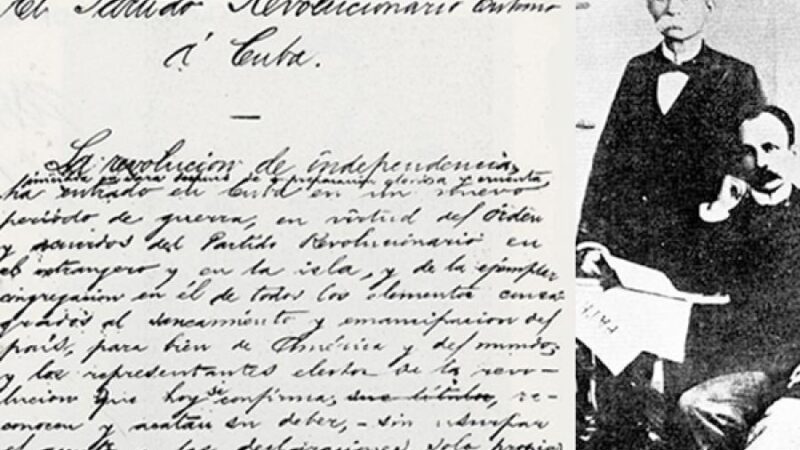 El Partido Revolucionario Cubano
á Cuba.
La revolucion de independencia,
iniciada en Yara despues de preparacion gloriosa y cruenta,
ha entrado en Cuba en un nuevo
periodo de guerra, en virtud del órden
y acuerdos del Partido Revolucionario en
el extrangero y en la isla, y de la ejemplar
congregacion en él de todos los elementos consa-
grados al saneamiento y emancipacion del
país, para bien de América y del mundo;
y los representantes electos de la revo-
lucion que hoy se confirma, sus titulos, re-
conocen y acatan su deber, – sin usurpar
el acento y las declaraciones solo propias